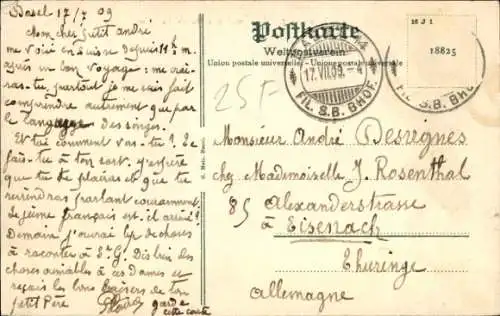 Basel 17/7 09
Mon cher petit andré
me voici en Suisse depuis 11h m.
après un bon voyage: me
tu, partout je me suis fait
comprendre autrement que par
le langage des singes.
Et toi comment vas-tu? Te
fais-tu à ton sort. j'espère
que tu te plairas et que tu
reviendras parlant couramment
Le jeune français est il arrivé?
Demain j'aurai bp de choses
à raconter à Dis bien des
choses aimables à ces dames et
reçois les bons baisers de ton
petit Père
garde
cette carte
Postkarte
Weltpostverein
Union postale universelle. - Unione postale universale
M J I
18825
BASEL
17.VII.09.-4
FIL. S.B. BHOF.
FIL. S.B. BHOF.
25 F
Monsieur André Desvignes
chez Mademoiselle J. Rosenthal
85 Alexanderstrasse
à Eisenach
Thuringe
Allemagne